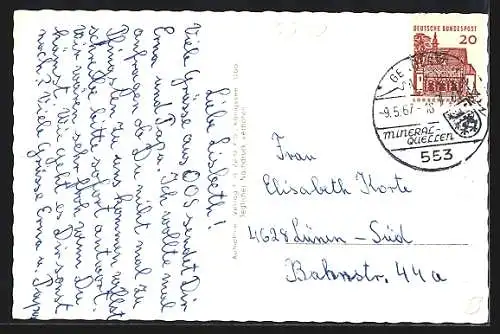 Liebe Lisbeth!
Viele Grüsse aus OOS sendet Dir
Erna und Papa. Ich wollte mal
anfragen ob Du nicht mal zu
Pfingsten zu uns kommen willst
schreibe bitte sofort antwort.
Wir waren sehr froh wenn Du
kämst. Wie geht es Dir sonst
noch? Viele Grüsse Erna u. Papa
Frau
Elisabeth Korte
4628 Lünen-Süd
Bahnstr. 44a
DEUTSCHE BUNDESPOST
20
-9.5.67-18
MINERAL-
QUELLEN
553